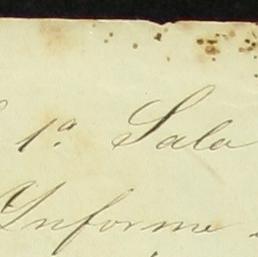 1ª Sala
Informe